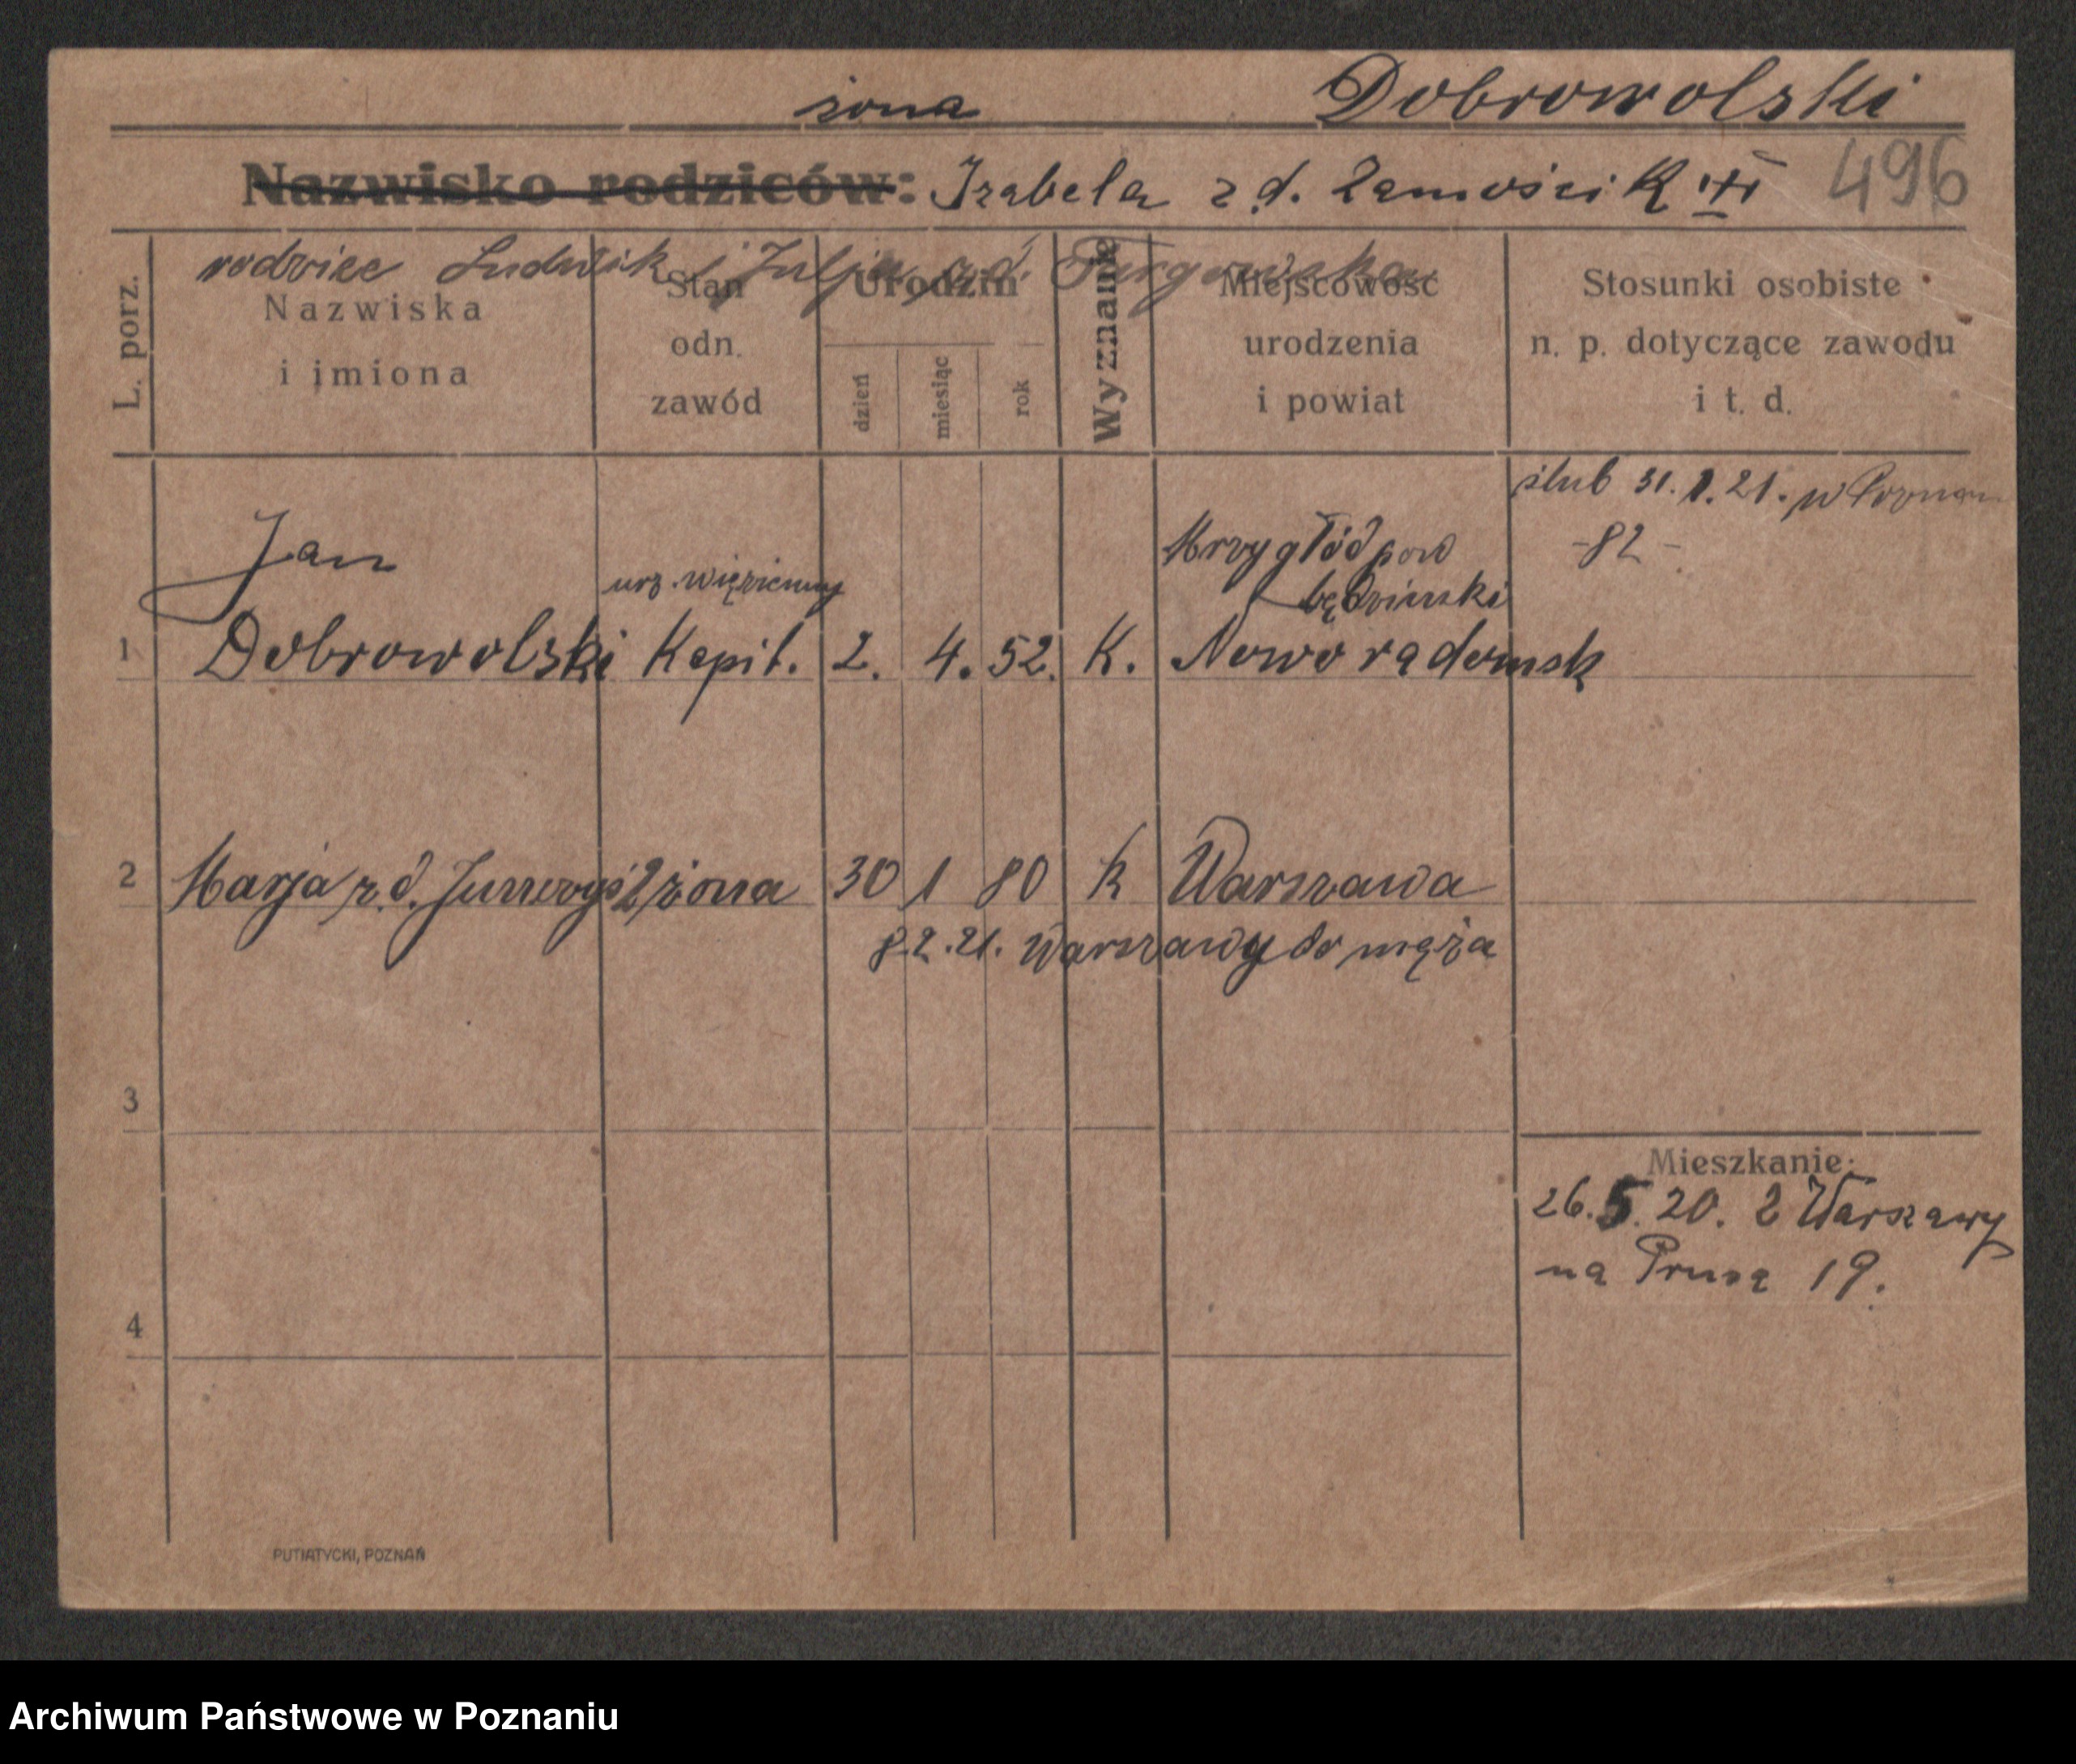 żona Dobrowolski
Nazwisko rodziców: Izabela z d. Zamościk 496
rodzice Ludwik i Julja z d.
L. porz.
Nazwiska
i imiona
Stan
odn.
zawód
Urodzin
dzień
miesiąc
rok
Wyznanie
Miejscowość
urodzenia
i powiat
Stosunki osobiste
n. p. dotyczące zawodu
i t. d.
ślub 31. 1. 21. w Poznan
-82-
Jan urz. więzienny Krzygłód pow
będziński
1 Dobrowolski Kapit. 2. 4. 52. K. Noworadomsk
2 Marja z d. żona 30 1 80 K Warszawa
8.2.21. Warszawy do męża
3
Mieszkanie:
26. 5. 20. z Warszawy
na Prusa 19.
4
PUTIATYCKI, POZNAŃ
Archiwum Państwowe w Poznaniu